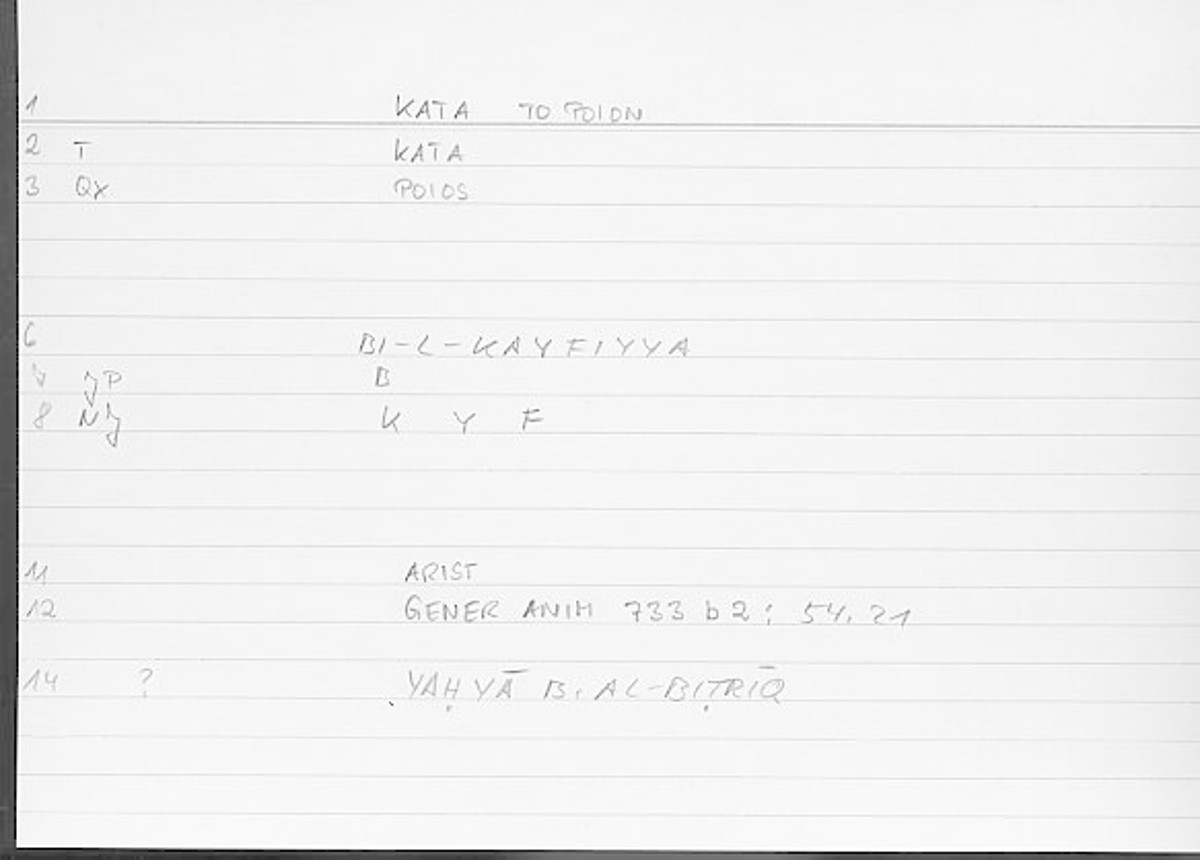 1 KATA TO POION
2 T KATA
3 Qx POIOS
6 BI-L-KAYFIYYA
7 JP B
8 NJ K Y F
11 ARIST
12 GENER ANIM 733 b 2 ; 54.21
14 ? YAḤYĀ B. AL-BIṬRĪQ